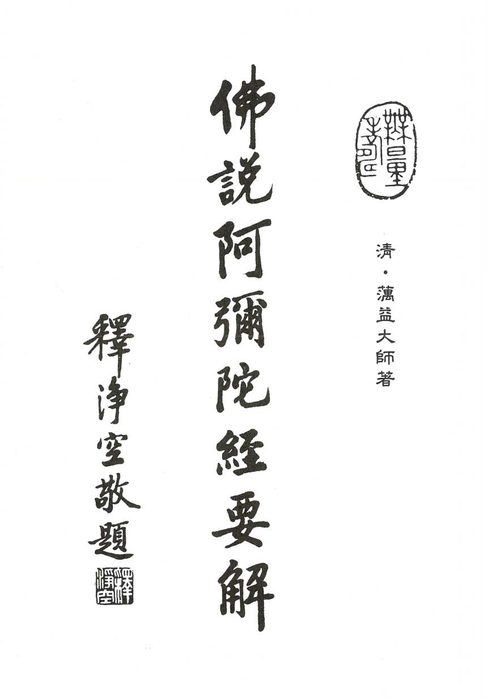 清・蕅益大師著
佛説阿彌陀經要解
釋淨空敬題
釋淨空